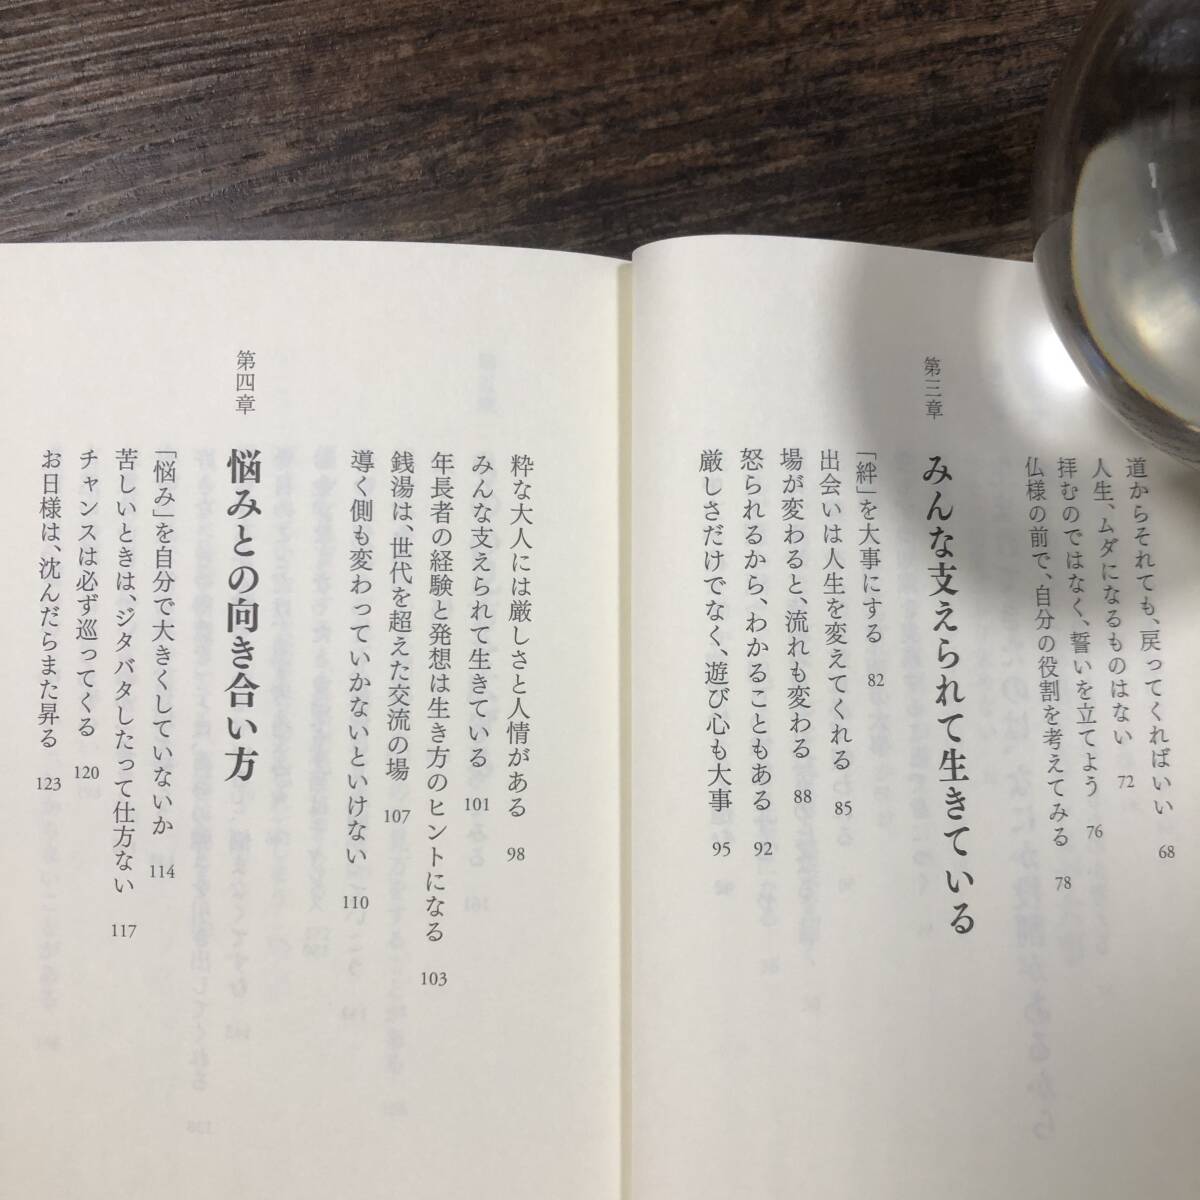 道からそれても、戻ってくればいい 68
人生、ムダになるものはない 72
拝むのではなく、誓いを立てよう 76
仏様の前で、自分の役割を考えてみる 78
第三章 みんな支えられて生きている
「絆」を大事にする 82
出会いは人生を変えてくれる 85
場が変わると、流れも変わる 88
怒られるから、わかることもある 92
厳しさだけでなく、遊び心も大事 95
粋な大人には厳しさと人情がある 98
みんな支えられて生きている 101
年長者の経験と発想は生き方のヒントになる 103
銭湯は、世代を超えた交流の場 107
導く側も変わっていかないといけない 110
第四章 悩みとの向き合い方
「悩み」を自分で大きくしていないか 114
苦しいときは、ジタバタしたって仕方ない 117
チャンスは必ず巡ってくる 120
お日様は、沈んだらまた昇る 123